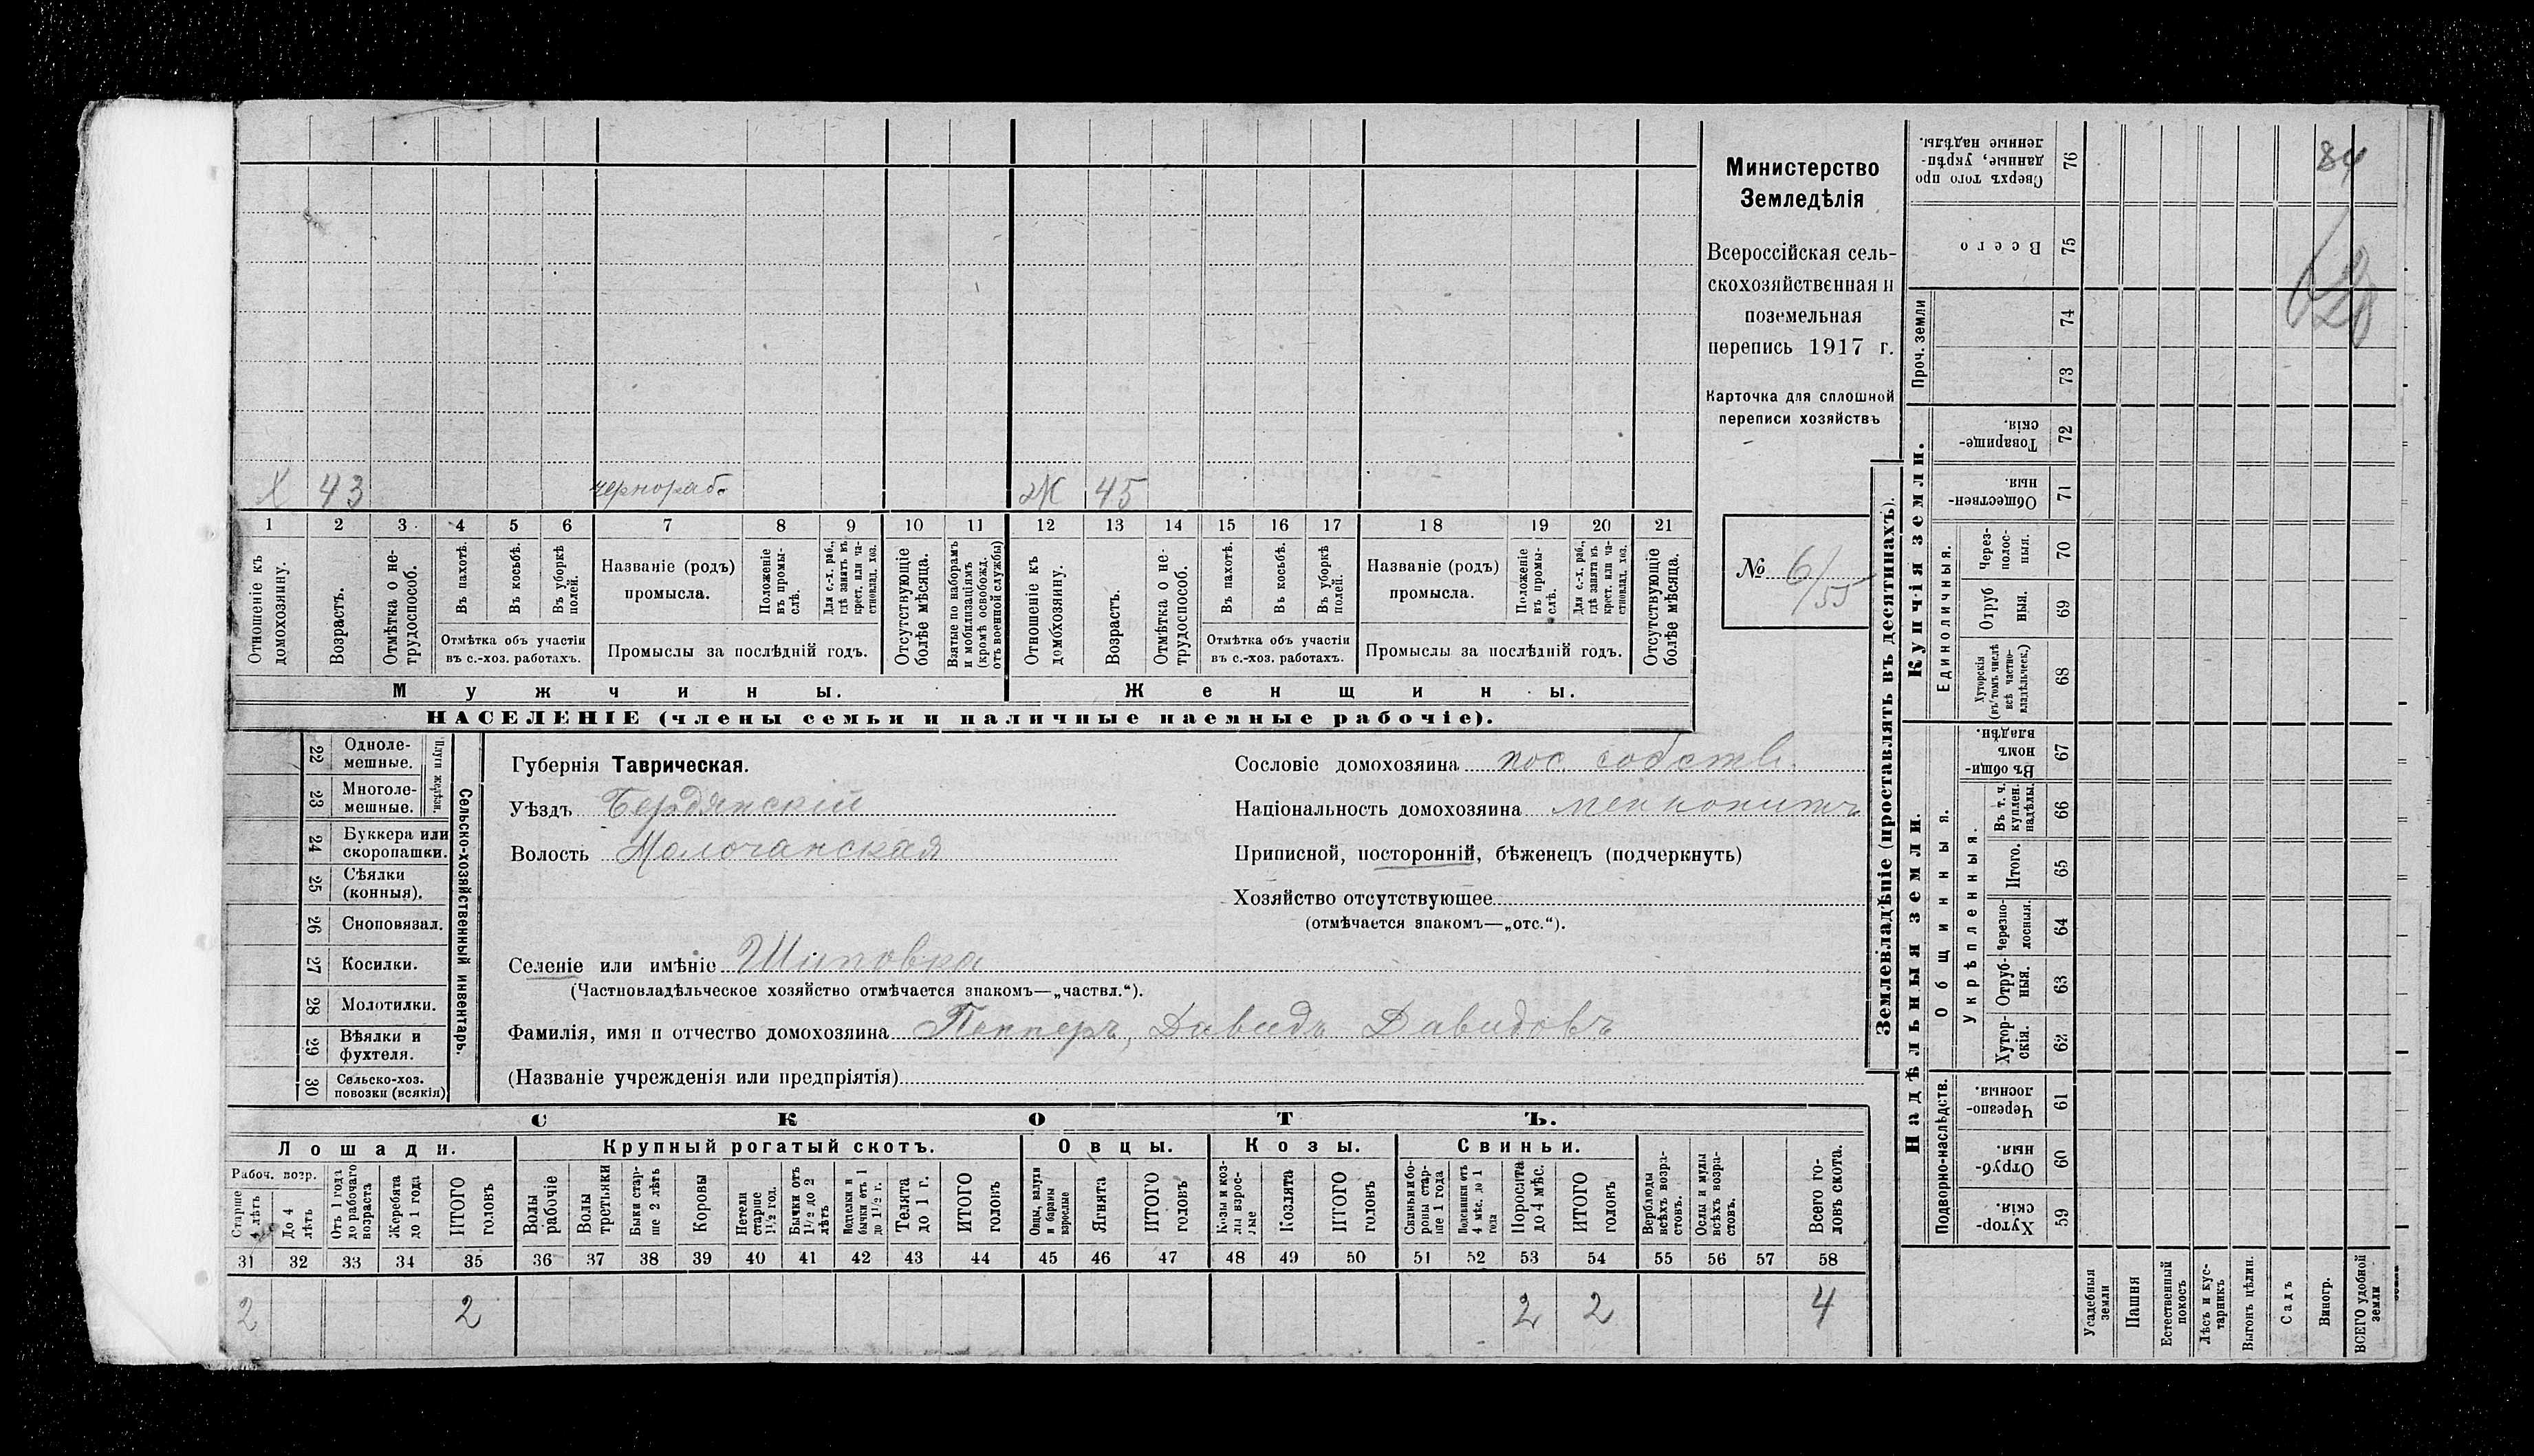 Х 43 чернораб. Ж 45
1 2 3 4 5 6 7 8 9 10 11 12 13 14 15 16 17 18 19 20 21
Отношеніе къ домохозяину.
Возрастъ.
Отмѣтка о не-
трудоспособ.
Въ пахотѣ.
Въ косьбѣ.
Въ уборкѣ
полей.
Отмѣтка объ участіи
въ с.-хоз. работахъ.
Названіе (родъ)
промысла.
Положеніе
въ промы-
слѣ.
Для с.-х. раб.,
гдѣ занятъ въ
крест. или ча-
стновлад. хоз.
Промыслы за послѣдній годъ.
Отсутствующіе
болѣе мѣсяца.
Взятые по наборамъ
и мобилизаціямъ
(кромѣ освобожд.
отъ военной службы)
Отношеніе къ
домохозяину.
Возрастъ.
Отмѣтка о не-
трудоспособ.
Въ пахотѣ.
Въ косьбѣ.
Въ уборкѣ
полей.
Отмѣтка объ участіи
въ с.-хоз. работахъ.
Названіе (родъ)
промысла.
Положеніе
въ промы-
слѣ.
Для с.-х. раб.,
гдѣ занята въ
крест. или ча-
стновлад. хоз.
Промыслы за послѣдній годъ.
Отсутствующіе
болѣе мѣсяца.
Мужчины.
Женщины.
НАСЕЛЕНІЕ (члены семьи и наличные наемные рабочіе).
Министерство
Земледѣлія
Всероссійская сель-
скохозяйственная и
поземельная
перепись 1917 г.
Карточка для сплошной
переписи хозяйствъ
№ 6/55
22 Одноле-
мешные.
23 Многоле-
мешные.
Плуги желѣзн.
24 Буккера или
скоропашки.
25 Сѣялки
(конныя).
26 Сноповязал.
27 Косилки.
28 Молотилки.
29 Вѣялки и
фухтеля.
30 Сельско-хоз.
повозки (всякія)
Сельско-хозяйственный инвентарь.
Губернія Таврическая.
Уѣздъ Бердянскій
Волость Молочанская
Сословіе домохозяина пос. собств.
Національность домохозяина меннонитъ
Приписной, посторонній, бѣженецъ (подчеркнуть)
Хозяйство отсутствующее
(отмѣчается знакомъ—„отс.“).
Селеніе или имѣніе Шиповка
(Частновладѣльческое хозяйство отмѣчается знакомъ—„частвл.“).
Фамилія, имя и отчество домохозяина Пеннеръ, Давидъ Давидовъ
(Названіе учрежденія или предпріятія)
СКОТЪ.
Лошади. Крупный рогатый скотъ. Овцы. Козы. Свиньи.
Рабоч. возр.
Старше
4 лѣтъ
До 4
лѣтъ
Отъ 1 года
до рабочаго
возраста
Жеребята
до 1 года
ИТОГО
головъ
Волы
рабочіе
Волы
третьяки
Быки стар-
ше 2 лѣтъ
Коровы
Нетели
старше
1½ год.
Бычки отъ
1½ до 2
лѣтъ
Нетелки и
бычки отъ 1
до 1½ г.
Телята
до 1 г.
ИТОГО
головъ
Овцы, валухи
и бараны
взрослые
Ягнята
ИТОГО
головъ
Козы и коз-
лы взрос-
лые
Козлята
ИТОГО
головъ
Свиньи бо-
ровы стар-
ше 1 года
Подсвинки отъ
4 мѣс. до 1
года
Поросята
до 4 мѣс.
ИТОГО
головъ
Верблюды
всѣхъ возра-
стовъ.
Ослы и мулы
всѣхъ возра-
стовъ.
Всего го-
ловъ скота.
31 32 33 34 35 36 37 38 39 40 41 42 43 44 45 46 47 48 49 50 51 52 53 54 55 56 57 58
2 2 2 2 4
Землевладѣніе (проставлять въ десятинахъ).
Сверхъ того про
данные, укрѣп-
ленные надѣлы. 76
84
Всего 75
Проч. земли
74
73
Купчія земли.
Товарище-
скія. 72
Обществен-
ныя. 71
Единоличныя.
Через-
полос-
ныя. 70
Отруб
ныя. 69
Хуторскія
(въ томъ числѣ
всѣ частно-
владѣльческ.) 68
Надѣльныя земли.
Общинныя.
Въ общи-
номъ
владѣн. 67
Укрѣпленныя.
Въ т. ч.
куплен.
надѣлы. 66
Итого. 65
Черезпо-
лосныя. 64
Отруб-
ныя. 63
Хутор-
скія. 62
Подворно-наслѣдств.
Черезпо-
лосныя. 61
Отруб-
ныя. 60
Хутор-
скія. 59
Усадебныя
земли
Пашня
Естественный
покосъ
Лѣсъ и кус-
тарникъ
Выгонъ цѣлин.
Садъ
Виногр.
ВСЕГО удобной
земли